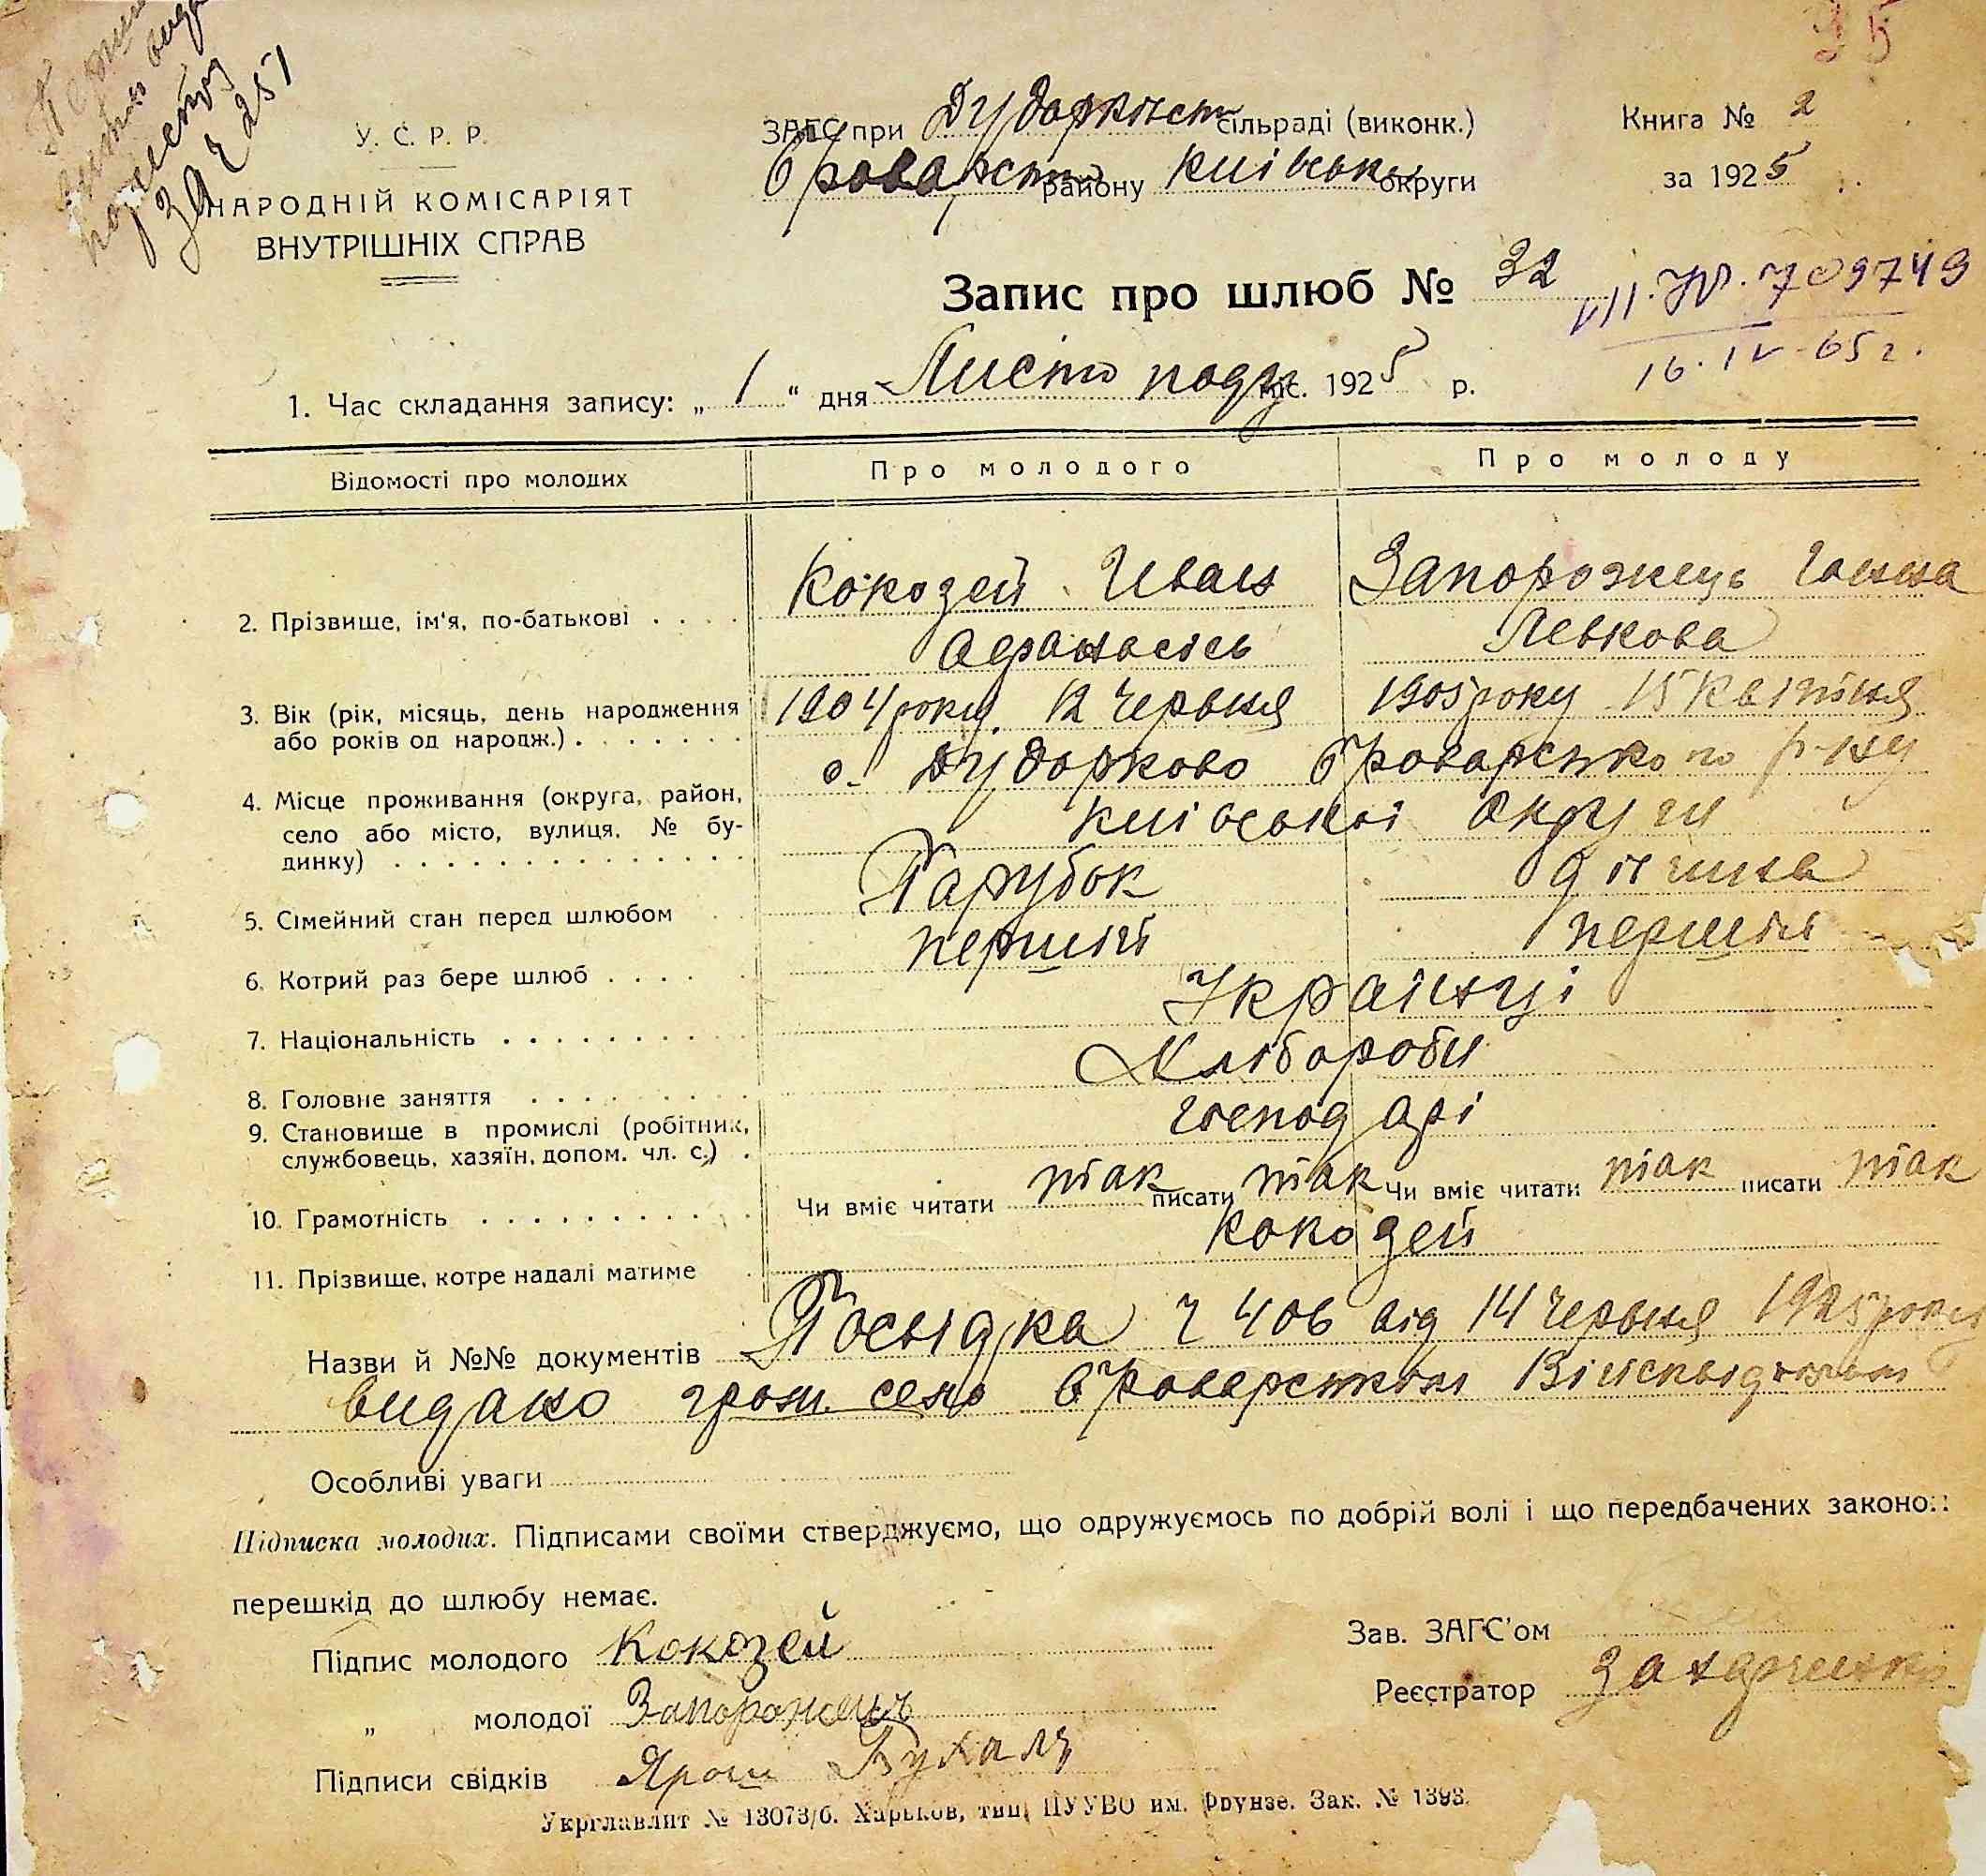 25
У. С. Р. Р.
НАРОДНІЙ КОМІСАРІЯТ
ВНУТРІШНІХ СПРАВ
ЗАГС при Дударківськ сільраді (виконк.)
Броварськ району Київськ округи
Книга № 2
за 1925
Запис про шлюб № 32
709749
16.IV-65 г.
1. Час складання запису: „ 1 " дня Листопаду міс. 1925 р.
Відомості про молодих Про молодого Про молоду
2. Прізвище, ім'я, по-батькові Кокозей Иван Запорожець Ганна
Афанасієв Левкова
3. Вік (рік, місяць, день народження або років од народж.) 1904 року 12 Червня 1905 року 15 Квітня
4. Місце проживання (округа, район, село або місто, вулиця, № будинку) с. Дударково Броварського р-ну
Київської округи
5. Сімейний стан перед шлюбом Парубок дівчина
6. Котрий раз бере шлюб перший перший
7. Національність Українці
8. Головне заняття Хлібороби
9. Становище в промислі (робітник, службовець, хазяїн, допом. чл. с.) господарі
10. Грамотність Чи вміє читати так писати так Чи вміє читати так писати так
11. Прізвище, котре надалі матиме Кокозей
Назви й №№ документів Посвідка ч 406 від 14 Червня 1925 року
видано Броварським
Особливі уваги
Підписка молодих. Підписами своїми стверджуємо, що одружуємось по добрій волі і що передбачених законом
перешкід до шлюбу немає.
Підпис молодого Кокозей
„ молодої Запорожець
Підписи свідків Ярош
Зав. ЗАГС'ом
Реєстратор
Укрглавлит № 13073/б. Харьков, тип. ПУУВО им. Фрунзе. Зак. № 1393.